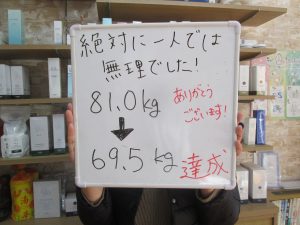 絶対に一人では
無理でした!
81.0kg
ありがとう
ございます!
↓
69.5kg 達成